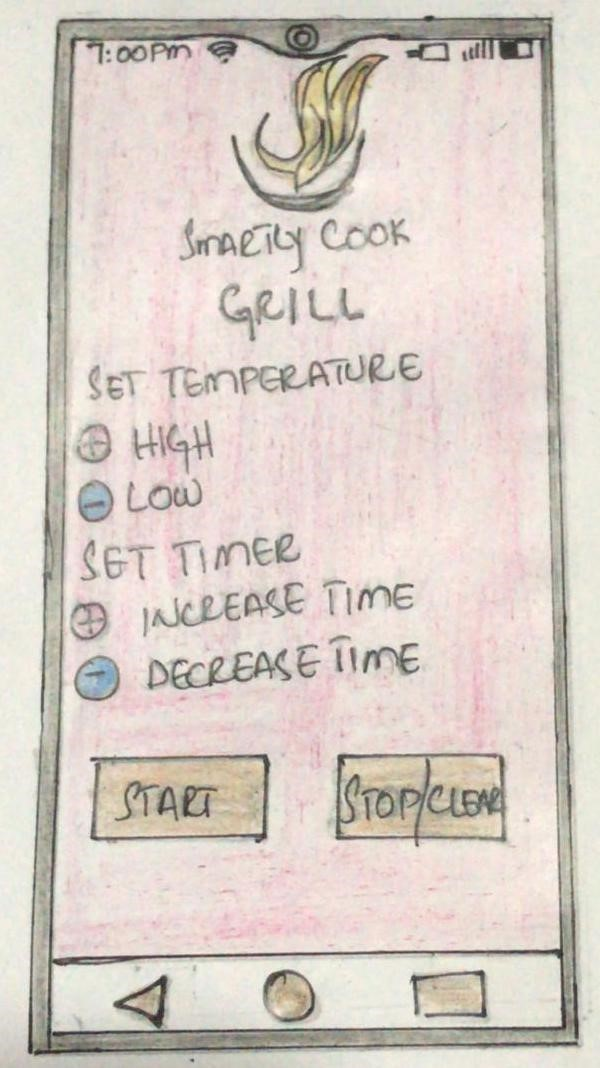 7:00Pm
SMARTLY COOK
GRILL
SET TEMPERATURE
+ HIGH
- LOW
SET TIMER
+ INCREASE TIME
- DECREASE TIME
START
STOP/CLEAR